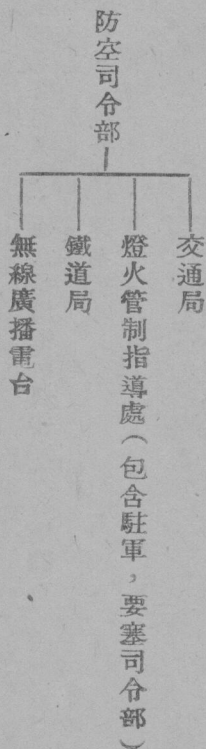 防空司令部
交通局
燈火管制指導處（包含駐軍，要塞司令部）
鐵道局
無線廣播電台